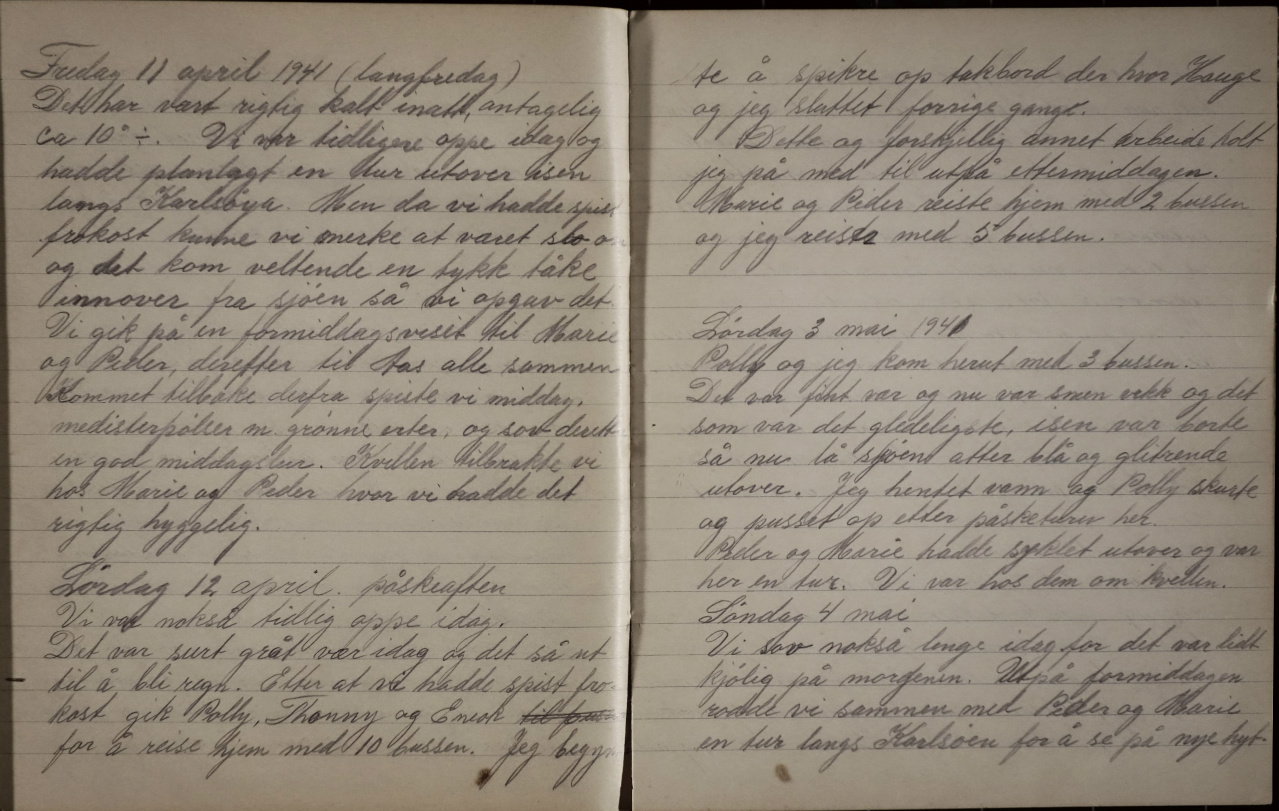 Fredag 11 april 1941 (langfredag)
Det har vært rigtig kalt inatt, antagelig
ca 10° ÷. Vi var tidligere oppe idag og
hadde planlagt en tur utover isen
langs Karlsøya. Men da vi hadde spist
frokost kunne vi merke at været slo om
og det kom veltende en tykk tåke
innover fra sjøen så vi opgav det.
Vi gik på en formiddagsvisit til Marie
og Peder, derefter til oss alle sammen
Kommet tilbake derfra spiste vi middag.
medisterpølser m. grønne erter, og sov derett
en god middagslur. Kvellen tilbrakte vi
hos Marie og Peder hvor vi hadde det
rigtig hyggelig.
Lørdag 12 april. påskeaften
Vi var nokså tidlig oppe idag.
Det var surt gråt vær idag og det så ut
til å bli regn. Etter at vi hadde spist fro-
kost gik Polly, Thonny og Eneok
for å reise hjem med 10 bussen. Jeg begyn
te å spikre op takbord der hvor Hauge
og jeg sluttet forrige gang.
Dette og forskjellig annet arbeide holt
jeg på med til utpå ettermiddagen.
Marie og Peder reiste hjem med 2 bussen
og jeg reiste med 5 bussen.
Lørdag 3 mai 1941
Polly og jeg kom herut med 3 bussen.
Det var fint vær og nu var sneen vekk og det
som var det gledeligste, isen var borte
så nu lå sjøen atter blå og glitrende
utover. Jeg hentet vann og Polly skurte
og pusset op etter påsketuren her.
Peder og Marie hadde syklet utover og var
her en tur. Vi var hos dem om kvellen.
Søndag 4 mai
Vi sov nokså lenge idag for det var lidt
kjølig på morgenen. Utpå formiddagen
rodde vi sammen med Peder og Marie
en tur langs Karlsøen for å se på nye hyt-